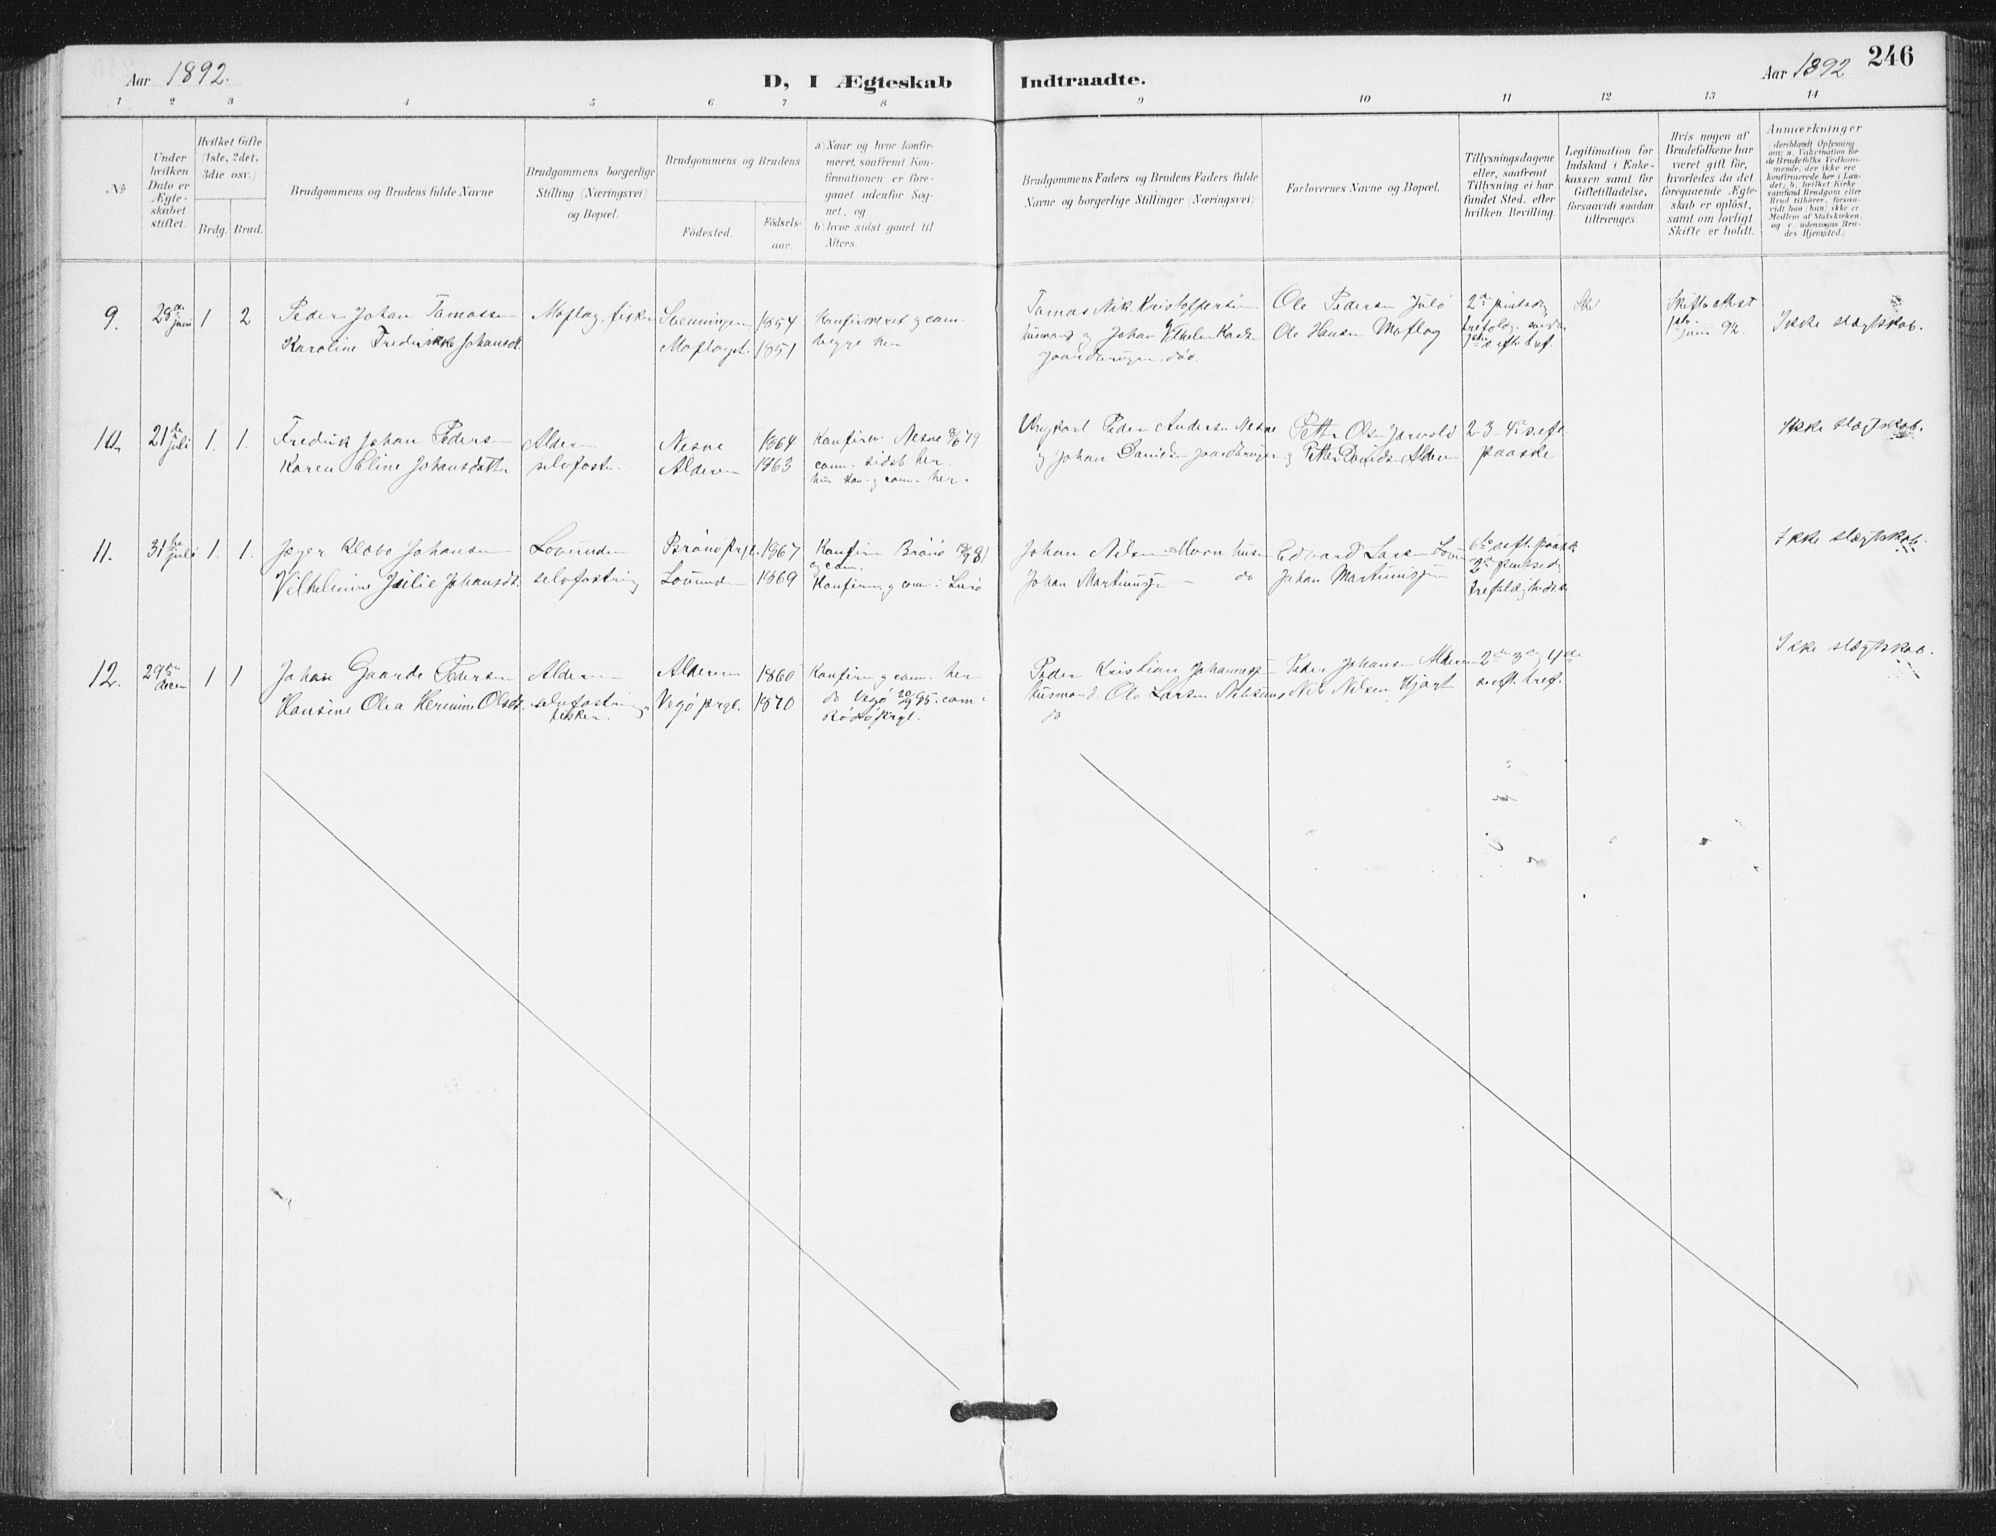 Aar 1892.
D, I Ægteskab Indtraadte.
Aar 1892 246
1 2 3 4 5 6 7 8 9 10 11 12 13 14
№
Under hvilken Dato er Ægteskabet stiftet.
Hvilket Gifte (1ste, 2det, 3die osv.)
Brdg. Brud.
Brudgommens og Brudens fulde Navne
Brudgommens borgerlige Stilling (Næringsvei) og Bopæl.
Brudgommens og Brudens
Fødested.
Fødselsaar.
a) Naar og hvor konfirmeret, saafremt Konfirmationen er foregaaet udenfor Sognet, og
b) hvor sidst gaaet til Alters.
Brudgommens Faders og Brudens Faders fulde Navne og borgerlige Stillinger (Næringsvei)
Forlovernes Navne og Bopæl.
Tillysningsdagene eller, saafremt Tillysning ei har fundet Sted, efter hvilken Bevilling
Legitimation for Indskud i Enkekassen samt for Giftetilladelse, forsaavidt saadan tiltrænges.
Hvis nogen af Brudefolkene har været gift før, hvorledes da det foregaaende Ægteskab er opløst, samt om lovligt Skifte er holdt.
Anmærkninger (deriblandt Oplysning om: a. Vakcination for de Brudefolks Vedkommende, der ikke ere konfirmerede her i Landet; b. hvilket Kirkesamfund Brudgom eller Brud tilhører, forsaavidt han (hun) ikke er Medlem af Statskirken, og c. udensogns Brudes Hjemsted.)
9. 28de juni 1 2
Peder Johan Tomassen
Karoline Fredrikke Johansdt.
Moflag, fisker
Svenningen 1854
Moflaget 1851
Konfirmeret og com.
begge her
Tomas Nik. Kristoffersen
husmand og Johan
gaardbruger, død.
Ole Pedersen
Ole Hansen Moflag
2den pintsedag
Skifteattest
juni 92.
Ikke slægtskab.
10. 21de juli 1. 1.
Fredrik Johan Pedersen
Karen Eline Johansdatter
Alderen
selvfost.
Nesne 1864
Alderen 1863
Konfirm. Nesne
com. sidst her.
hun kon. og com. her.
Peder Andersen Nesne
og Johan Danielsen gaardbruger
Petter Olsen
og Petter Alderen
2-3-4 s. eft.
paaske
Ikke slægtskab.
11. 31te juli 1. 1.
Jæger Klæbo Johansen
Vilhelmine Julie Johansdt.
Lovunden
selvfostring
Brønø Prgl. 1867
Lovunden 1869
Konfirm Brønø
og com.
Konfirm. og com. i Lurø
Johan Nilsen Horn husm
Johan Martinussen do
Edvard Larsen Lovun
Johan Martinussen
6te s. eft. paaske
2den pintsedag
Ikke slægtskab.
12. 29de decm 1 1
Johan Gaarde Pedersen
Hansine Olea Hermine Olsdt.
Alderen
selvfostring
fisker.
Alderen 1860
Vegø Prgl. 1870
Konfirm. og com. her
do Vegø 20/9 85. com i
Rødø Prgl.
Peder Kristian Johannessen
husmand. Ole Larsen
do
Peder Johansen Alderen
Nils Nilsen Hjart
2den 3die og 4de
s. eft. tref.
Ikke slægtskab.